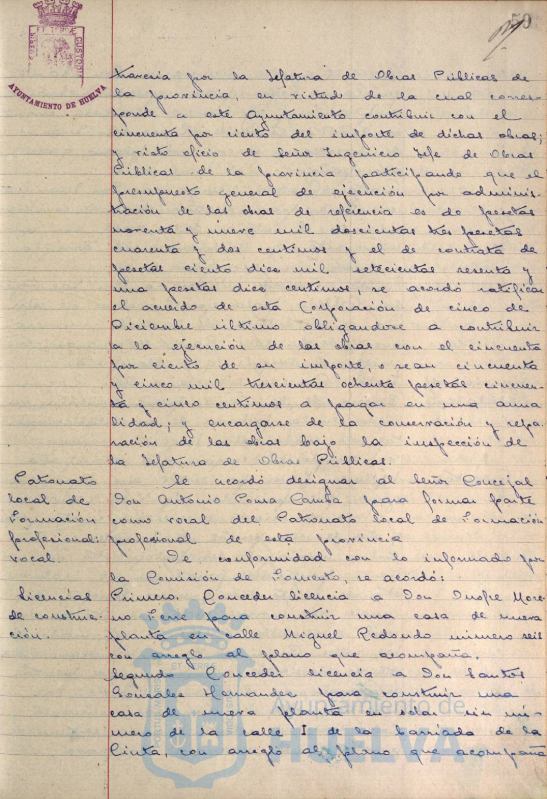 59
AYUNTAMIENTO DE HUELVA
travesia por la Jefatura de Obras Públicas de
la provincia, en virtud de la cual corres-
ponde a este Ayuntamiento contribuir con el
cincuenta por ciento del importe de dichas obras;
y visto oficio de Señor Ingeniero Jefe de Obras
Públicas de la provincia participando que el
presupuesto general de ejecución por adminis-
tración de las obras de referencia es de pesetas
noventa y nueve mil doscientas tres pesetas
cuarenta y dos centimos y el de contrata de
pesetas ciento diez mil setecientas sesenta y
una pesetas diez centimos, se acordó ratificar
el acuerdo de esta Corporación de cinco de
Diciembre último obligandose a contribuir
a la ejecución de las obras con el cincuenta
por ciento de su importe, o sean cincuenta
y cinco mil trescientas ochenta pesetas cincuen-
ta y cinco centimos a pagar en una anua-
lidad; y encargarse de la conservación y repa-
ración de las obras bajo la inspección de
la Jefatura de Obras Públicas.
Patronato
local de
Formación
profesional:
vocal.
Se acordó designar al Señor Concejal
Don Antonio Poma para formar parte
como vocal del Patronato local de Formación
profesional de esta provincia
De conformidad con lo informado por
la Comisión de Fomento, se acordó:
Licencias
de construc-
ción.
Primero. Conceder licencia a Don Onofre More-
no Ferre para construir una casa de nueva
planta en calle Miguel Redondo número seis
con arreglo al plano que acompaña.
Segundo Conceder licencia a Don Santos
Gonzalez Hernandez para construir una
casa de nueva planta en solar sin nú-
mero de la calle I de la barriada de la
Cinta, con arreglo al plano que acompaña
Ayuntamiento de
HUELVA